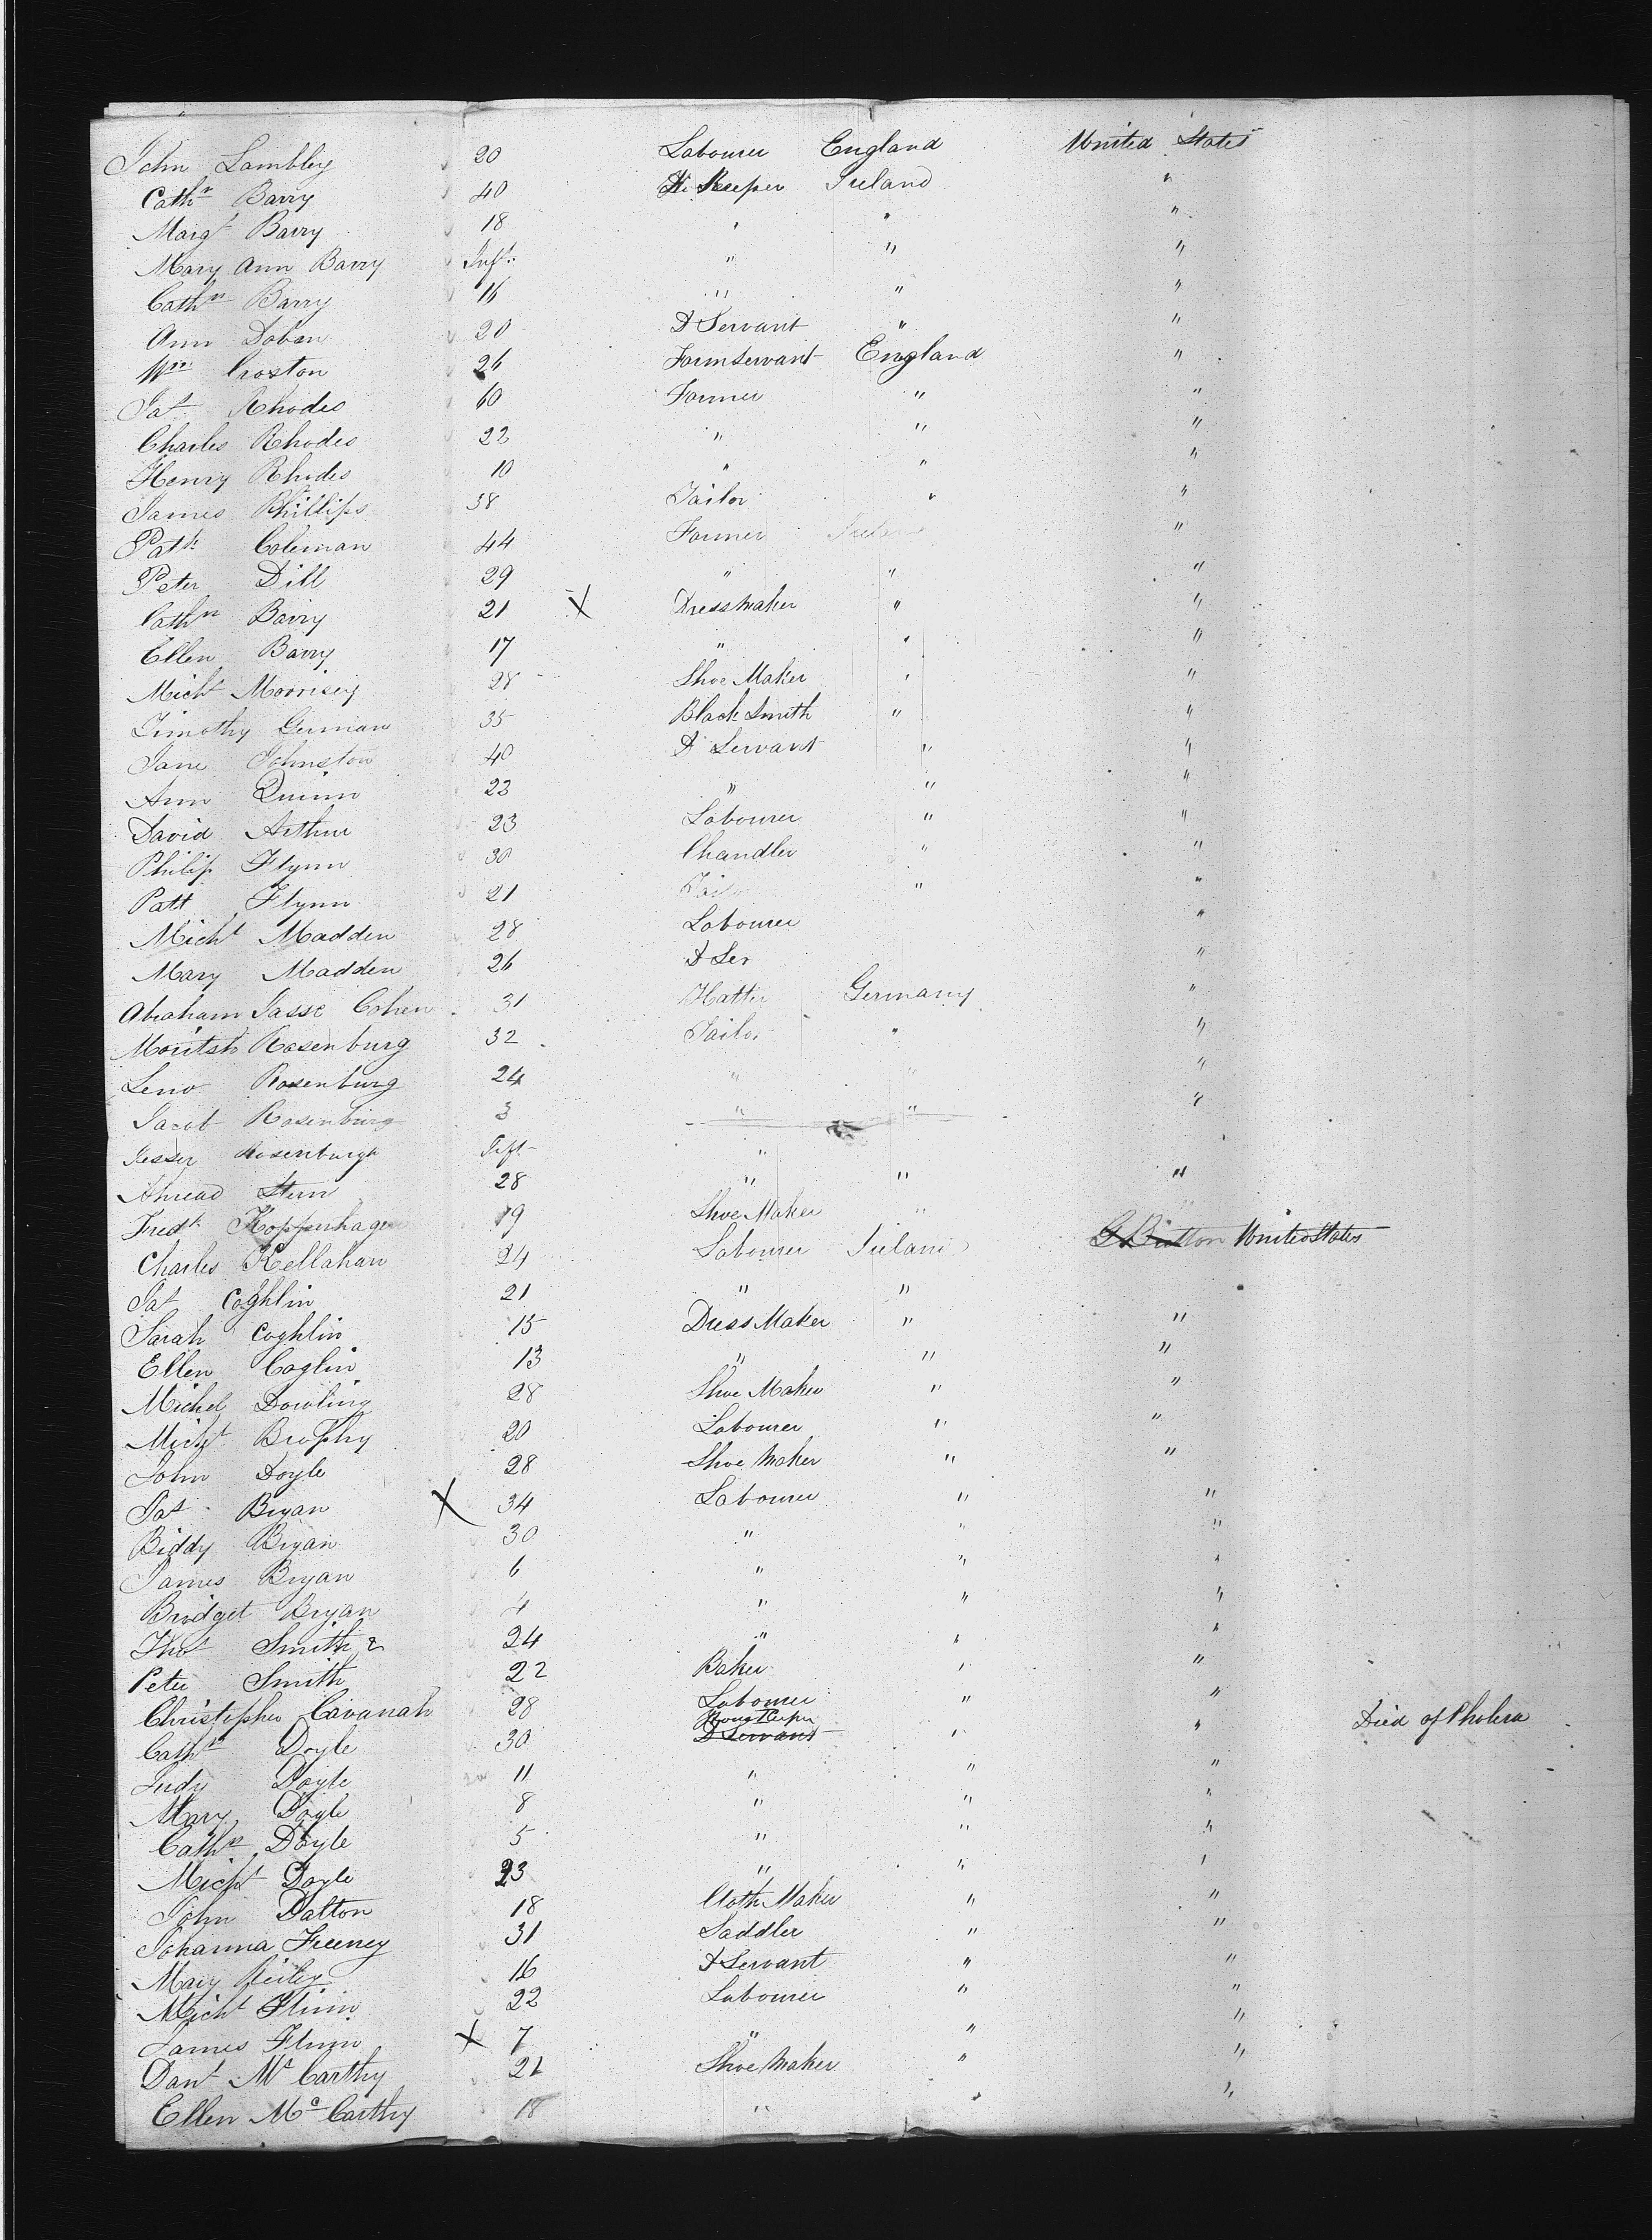 John Lambley 20 Labourer England United States
Cathn Barry 40 H. Keeper Ireland "
Margt Barry 18 " " "
Mary Ann Barry Inft " " "
Cathn Barry 16 " " "
Ann Doban 20 D Servant " "
Wm Croston 26 Farmservant England "
Pat Rhodes 60 Farmer " "
Charles Rhodes 22 " " "
Henry Rhodes 10 " " "
James Phillips 38 Tailor " "
Patk Coleman 44 Farmer Ireland "
Peter Dill 29 " " "
Cathn Barry 21 X Dressmaker " "
Ellen Barry 17 " " "
Michl Morrisey 28 Shoe Maker " "
Timothy German 35 Black Smith " "
Jane Johnston 40 D Servant " "
Ann Quinn 23 " " "
David Arthur 23 Labourer " "
Philip Flynn 30 Chandler " "
Patt Flynn 21 Tailor " "
Michl Madden 28 Labourer "
Mary Madden 26 D Ser "
Abraham Sasse Cohen 31 Hatter Germany "
Moritsh Rosenburg 32 Tailor " "
Leno Rosenburg 24 " " "
Jacob Rosenburg 3 " " "
Jesser Rosenburgh Inft " "
Stern 28 " " "
Fredk Kopperhagen 19 Shoe Maker "
Charles Kellahan 24 Labourer Ireland G Britton United States
Pat Coghlin 21 " " "
Sarah Coghlin 15 Dress Maker " "
Ellen Coglin 13 " " "
Michel Dowling 28 Shoe Maker " "
Michl Brophy 20 Labourer " "
John Doyle 28 Shoe Maker " "
Pat Bryan X 34 Labourer " "
Biddy Bryan 30 " " "
James Bryan 6 " " "
Bridget Bryan 4 " " "
Thos Smith & 24 " " "
Peter Smith 22 Baker " "
Christopher Cavanah 28 Labourer " "
Cathn Doyle 30 House Keeper D Servant " " Died of Cholera
Judy Doyle 11 " " "
Mary Doyle 8 " " "
Cathn Doyle 5 " " "
Michl Doyle 23 " " "
John Dalton 18 Cloth Maker " "
Johanna Feeney 31 Saddler " "
Mary Reiley 16 D Servant " "
Michl Flinn 22 Labourer " "
James Flinn X 7 " " "
Danl Mc Carthy 21 Shoe Maker " "
Ellen Mc Carthy 18 " " "